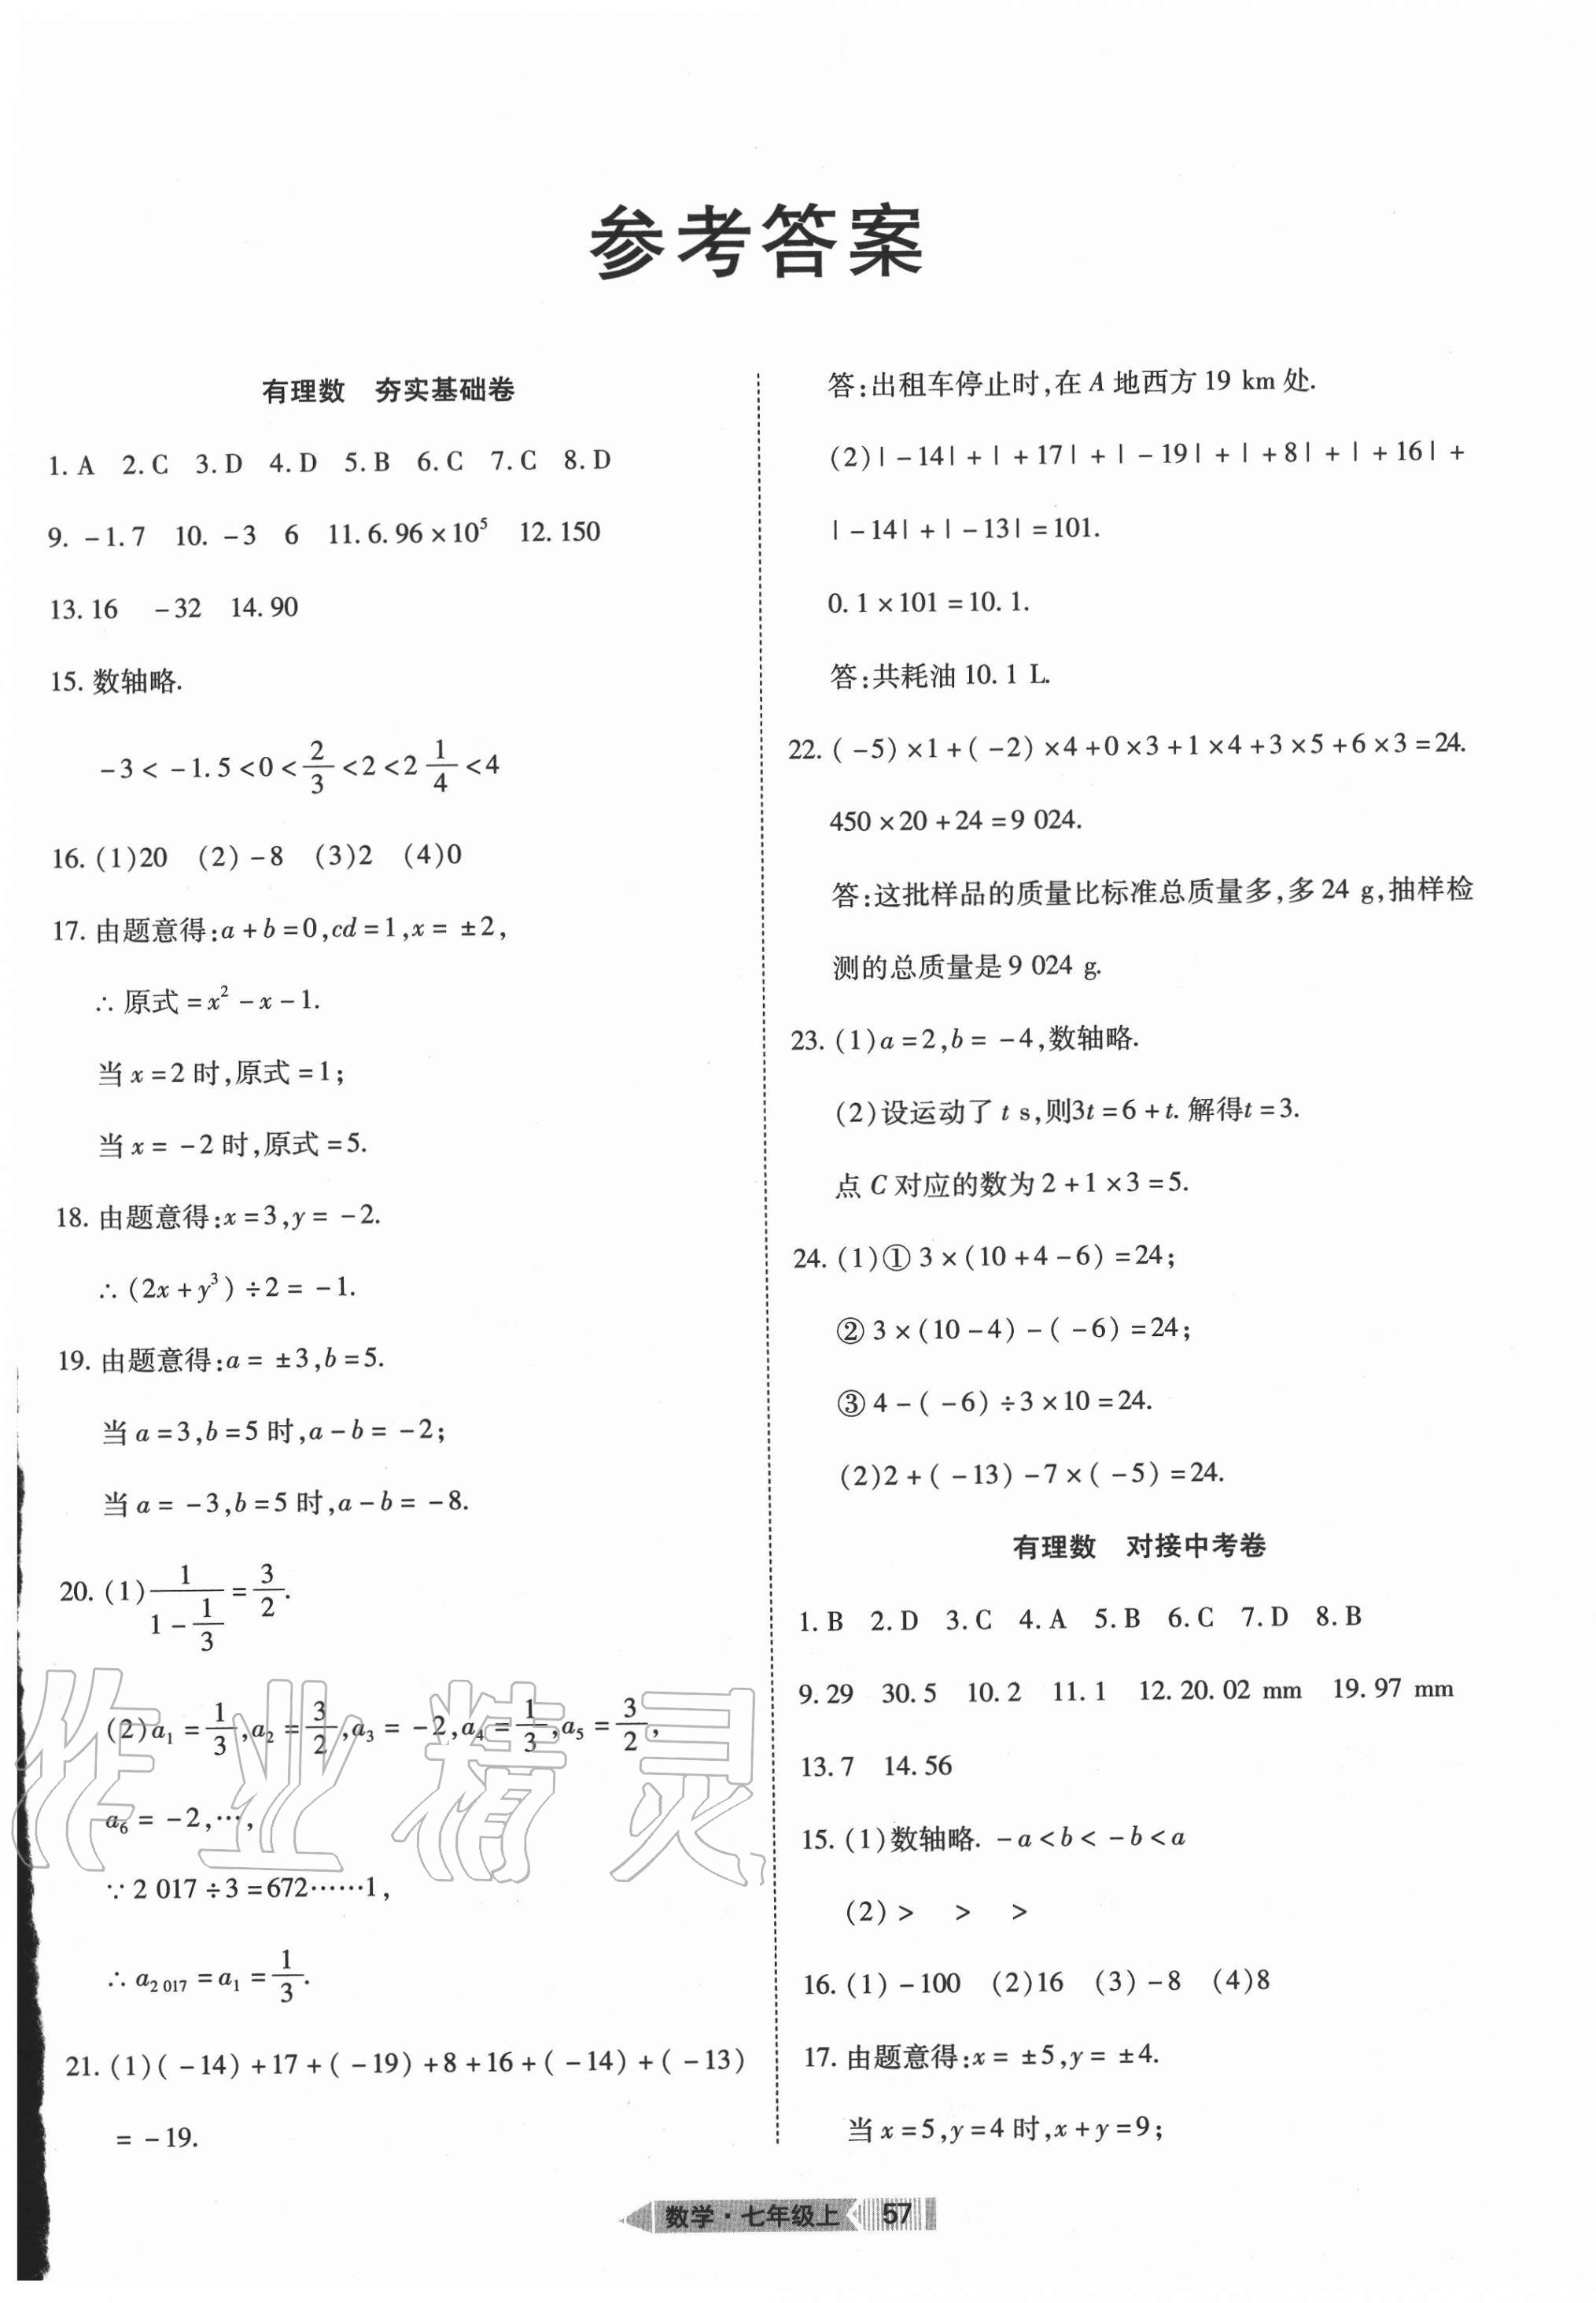 参考答案
有理数 夯实基础卷
1. A 2. C 3. D 4. D 5. B 6. C 7. C 8. D
9. －1.7 10. －3 6 11. 6.96×10⁵ 12. 150
13. 16 －32 14. 90
15. 数轴略.
－3＜－1.5＜0＜2/3＜2＜2 1/4＜4
16. (1)20 (2)－8 (3)2 (4)0
17. 由题意得:a＋b＝0,cd＝1,x＝±2,
∴原式＝x²－x－1.
当x＝2时,原式＝1;
当x＝－2时,原式＝5.
18. 由题意得:x＝3,y＝－2.
∴(2x＋y³)÷2＝－1.
19. 由题意得:a＝±3,b＝5.
当a＝3,b＝5时,a－b＝－2;
当a＝－3,b＝5时,a－b＝－8.
20. (1) 1/(1－1/3)＝3/2.
(2)a₁＝1/3,a₂＝3/2,a₃＝－2,a₄＝1/3,a₅＝3/2,
a₆＝－2,…,
∵2 017÷3＝672……1,
∴a₂ ₀₁₇＝a₁＝1/3.
21. (1)(－14)＋17＋(－19)＋8＋16＋(－14)＋(－13)
＝－19.
答:出租车停止时,在A地西方19 km处.
(2)|－14|＋|＋17|＋|－19|＋|＋8|＋|＋16|＋
|－14|＋|－13|＝101.
0.1×101＝10.1.
答:共耗油10.1 L.
22. (－5)×1＋(－2)×4＋0×3＋1×4＋3×5＋6×3＝24.
450×20＋24＝9 024.
答:这批样品的质量比标准总质量多,多24 g,抽样检
测的总质量是9 024 g.
23. (1)a＝2,b＝－4,数轴略.
(2)设运动了t s,则3t＝6＋t. 解得t＝3.
点C对应的数为2＋1×3＝5.
24. (1)①3×(10＋4－6)＝24;
②3×(10－4)－(－6)＝24;
③4－(－6)÷3×10＝24.
(2)2＋(－13)－7×(－5)＝24.
有理数 对接中考卷
1. B 2. D 3. C 4. A 5. B 6. C 7. D 8. B
9. 29 30.5 10. 2 11. 1 12. 20.02 mm 19.97 mm
13. 7 14. 56
15. (1)数轴略. －a＜b＜－b＜a
(2)＞ ＞ ＞
16. (1)－100 (2)16 (3)－8 (4)8
17. 由题意得:x＝±5,y＝±4.
当x＝5,y＝4时,x＋y＝9;
作业精灵
数学·七年级上 57